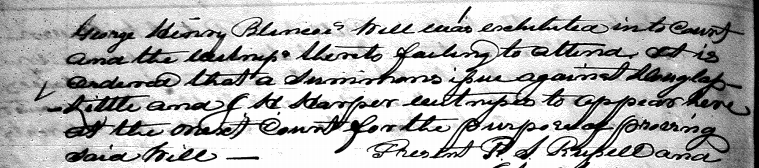 George Henry Blincoes Will was exhibited into Court
and the witness thereto failing to attend it is
ordered that a Summons issue against Douglass
Tittle and J H Harper witness to appear here
at the next Court for the purpose of proving
said Will — Present R. S. Russell and